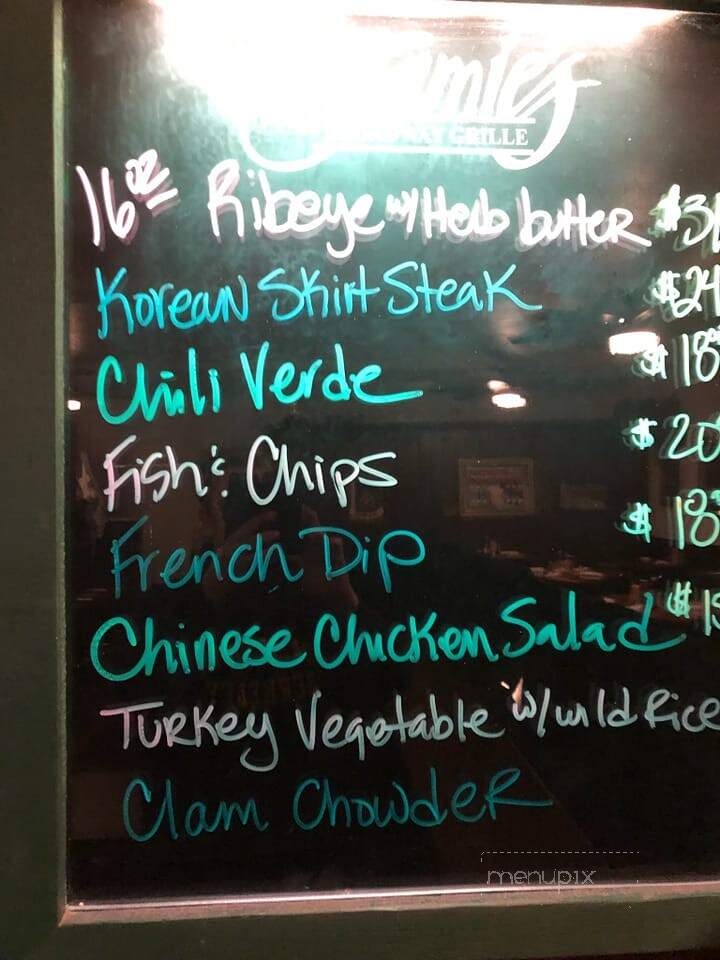 GRILLE
16oz Ribeye w/ Herb butter $3
Korean Skirt Steak $24
Chili Verde $18
Fish & Chips $20
French Dip $18
Chinese Chicken Salad $1
Turkey Vegetable w/ wild Rice
Clam Chowder
menupix